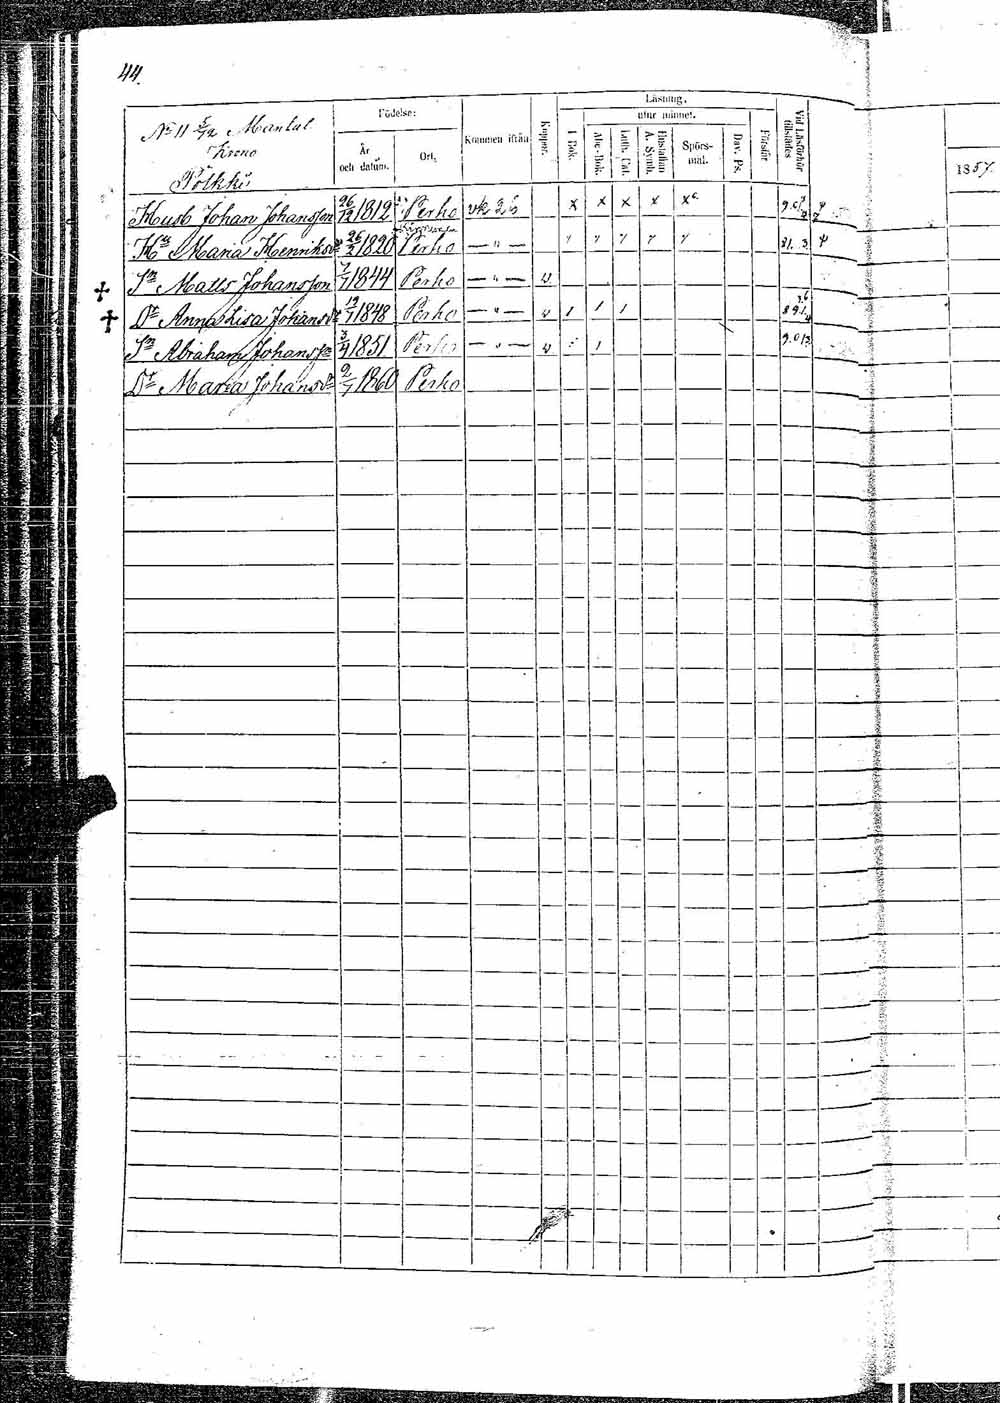 44.
No 11 5/72 Mantal
Krono
Pölkki
Födelse:
År och datum.
Ort.
Kommen ifrån
Koppor.
Läsning,
utur minnet.
I Bok.
Abc-Bok.
Luth. Cat.
Hustaflan A. Symb.
Spörs-mål.
Dav. Ps.
Förstår
Vid Läsförhör tillstädes
1857.
Husb Johan Johansson 26/12 1812 Perho x x x x x
Hu Maria Henriksdr 26/2 1820 Perho — " —
Sn Matts Johansson 7/7 1844 Perho — " —
Dr Anna Lisa Johansdr 12/7 1848 Perho — " —
Sn Abraham Johanss 3/4 1851 Perho — " —
Dr Maria Johansdr 9/7 1860 Perho